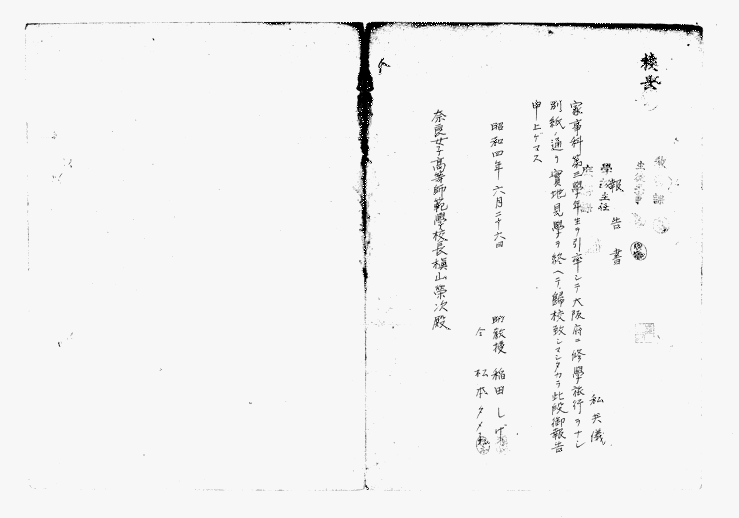 校長
報告書
私共儀
家事科第三學年生ヲ引率シテ大阪府ニ修學旅行ヲナシ
別紙ノ通リ實地見學ヲ終ヘテ歸校致シマシタカラ此段御報告
申上ゲマス
昭和四年六月二十六日
助敎授 稲田しげ
仝 松本タメ
奈良女子高等師範學校長槇山榮次殿